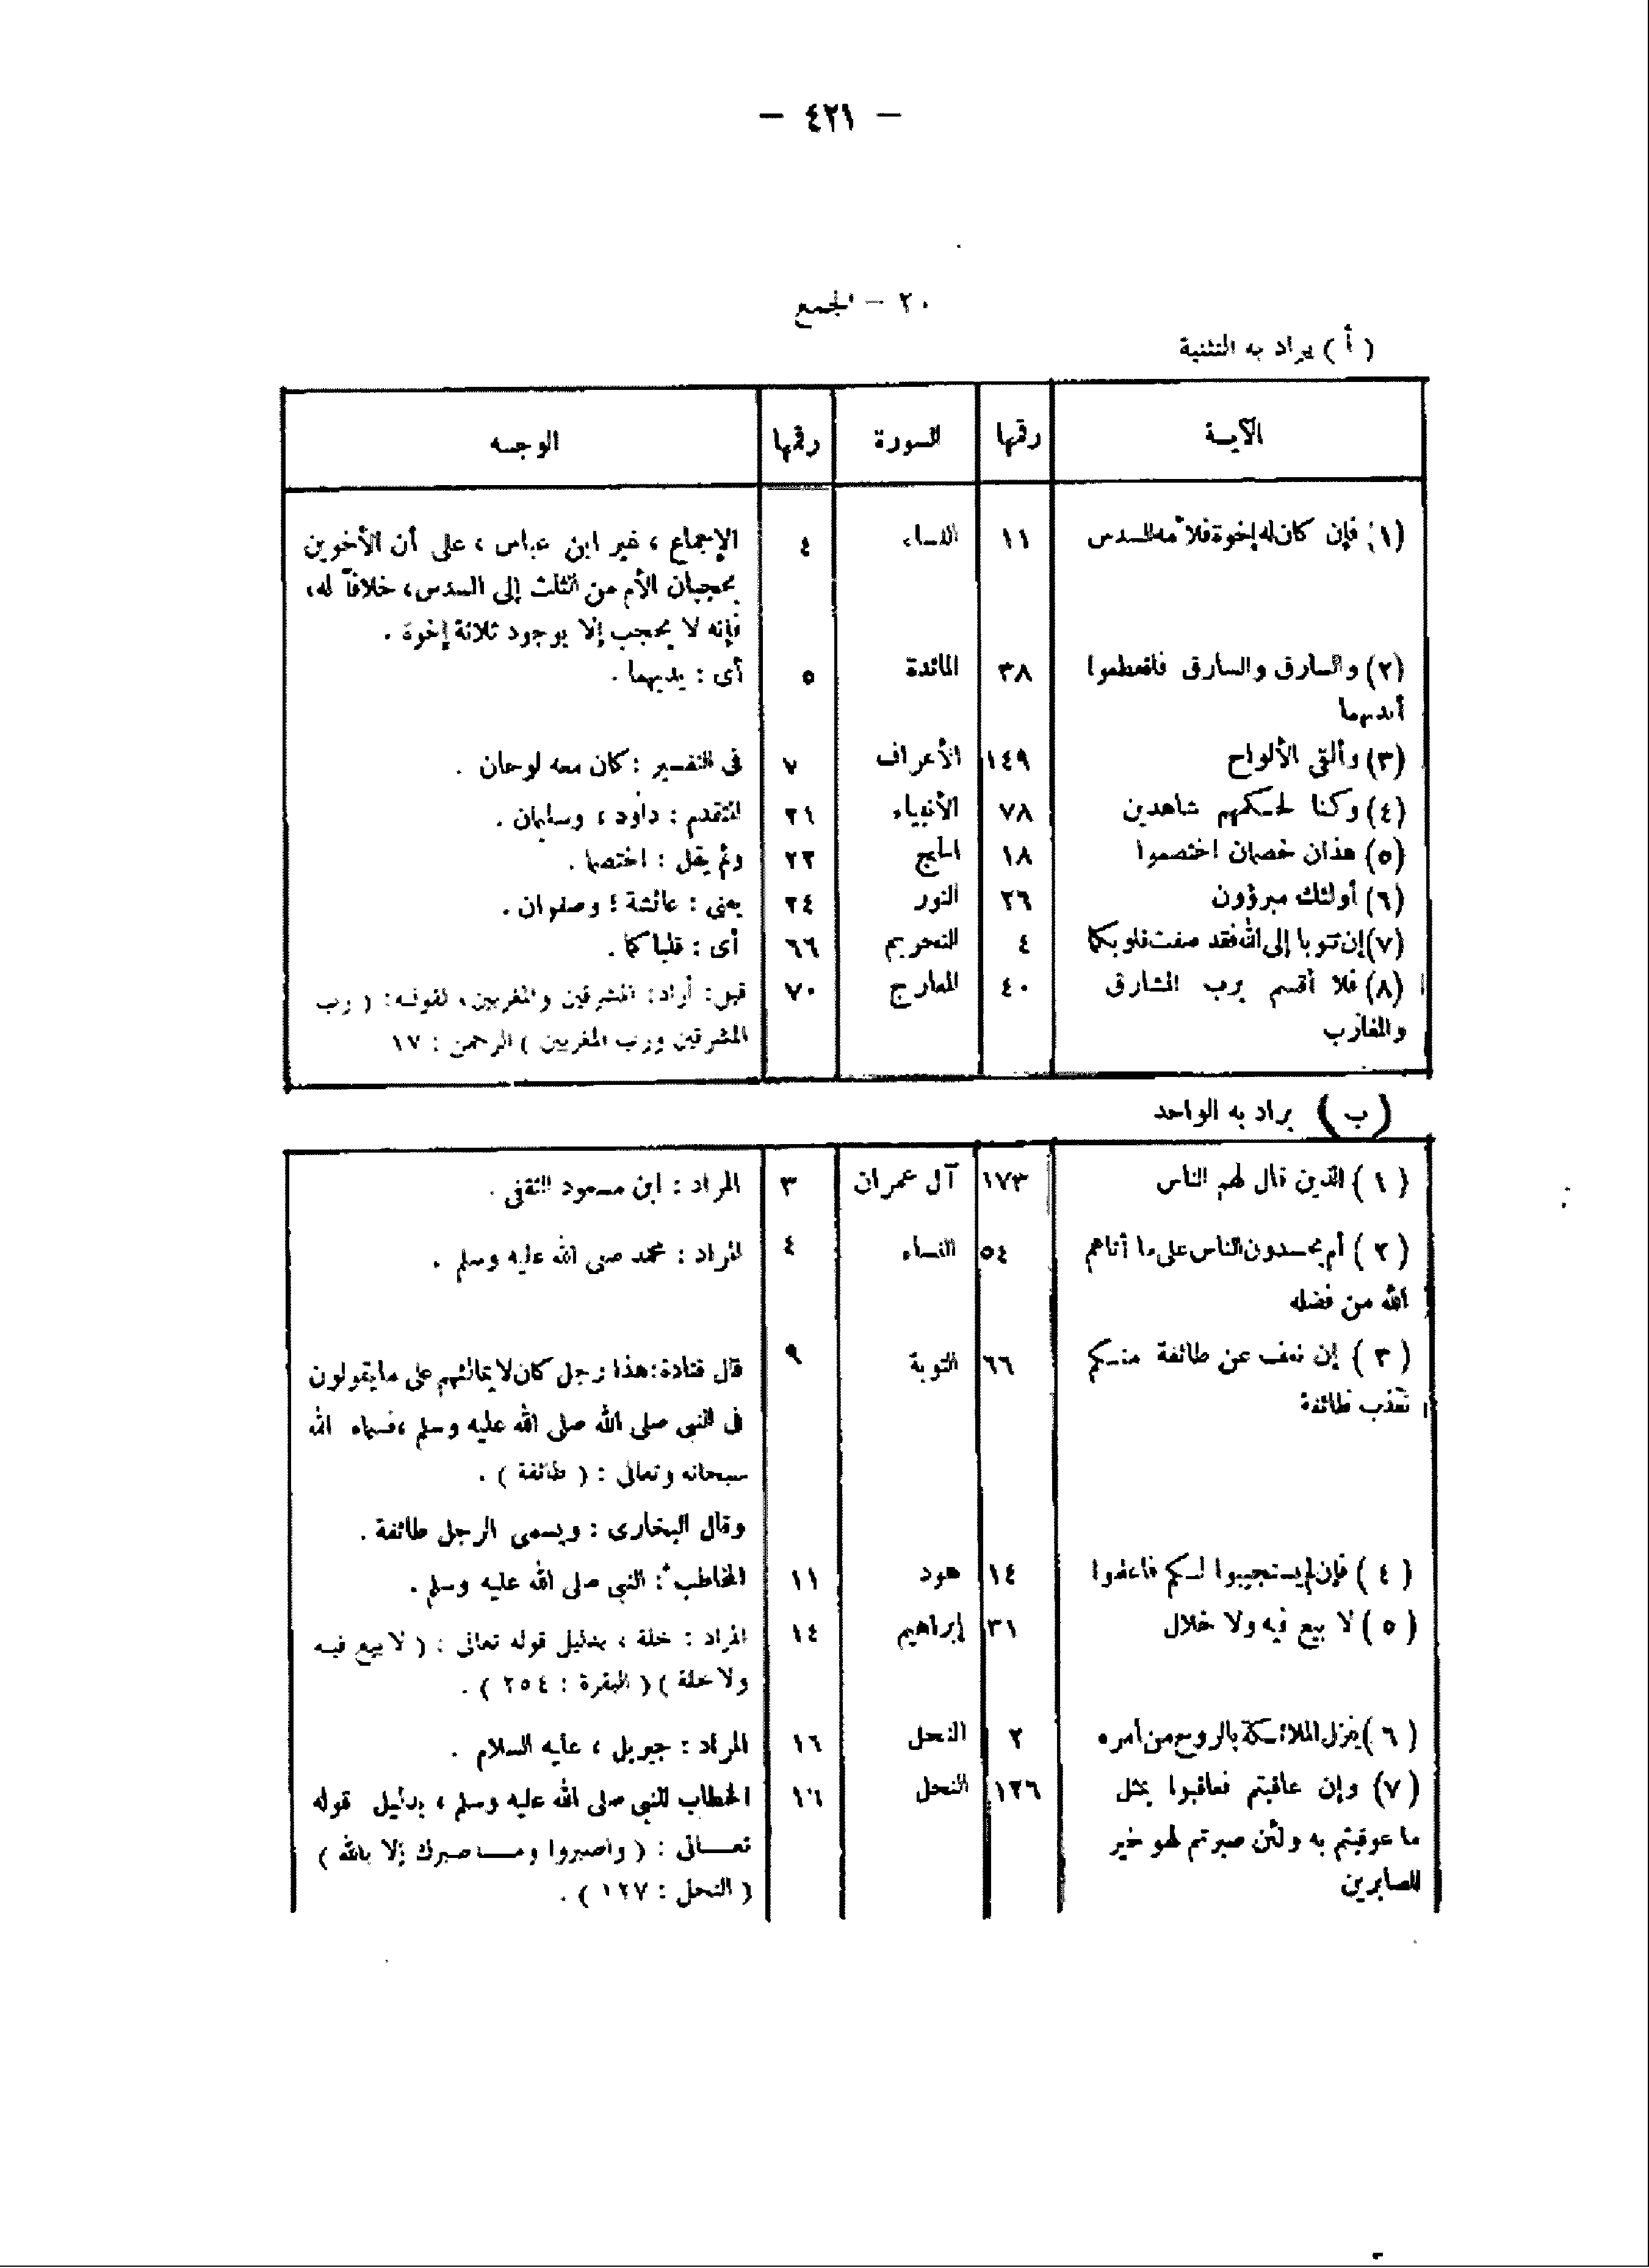 — ٤٢١ —
٢٠ — الجمع
( أ ) يراد به التثنية
الآيــة رقمها السورة رقمها الوجــه
(١) فإن كان له إخوة فلأمه السدس ١١ النساء ٤ الإجماع ، غير ابن عباس ، على أن الأخوين
يحجبان الأم من الثلث إلى السدس، خلافاً له،
فإنه لا يحجب إلا بوجود ثلاثة إخوة .
(٢) والسارق والسارق فاقطعوا ٣٨ المائدة ٥ أى : يديهما .
أيديهما
(٣) وألقى الألواح ١٤٩ الأعراف ٧ فى التفسير : كان معه لوحان .
(٤) وكنا لحكمهم شاهدين ٧٨ الأنبياء ٢١ المتقدم : داود ، وسليمان .
(٥) هذان خصمان اختصموا ١٨ الحج ٢٢ ولم يقل : اختصما .
(٦) أولئك مبرؤون ٢٦ النور ٢٤ يعنى : عائشة ؛ وصفوان .
(٧) إن تتوبا إلى الله فقد صغت قلوبكما ٤ التحريم ٦٦ أى : قلباكما .
(٨) فلا أقسم برب المشارق ٤٠ المعارج ٧٠ قيل: أراد: المشرقين والمغربين، لقوله: ( رب
والمغارب المشرقين ورب المغربين ) الرحمن : ١٧
( ب ) يراد به الواحد
( ١ ) الذين قال لهم الناس ١٧٣ آل عمران ٣ المراد : ابن مسعود الثقفى .
( ٢ ) أم يحسدون الناس على ما أتاهم ٥٤ النساء ٤ المراد : محمد صلى الله عليه وسلم .
الله من فضله
( ٣ ) إن نعف عن طائفة منكم ٦٦ التوبة ٩ قال قتادة: هذا رجل كان لا يمالئهم على ما يقولون
نعذب طائفة فى النبى صلى الله صلى الله عليه وسلم ، فسماه الله
سبحانه وتعالى : ( طائفة ) .
وقال البخارى : ويسمى الرجل طائفة .
( ٤ ) فإن لم يستجيبوا لكم فاعلموا ١٤ هود ١١ المخاطب : النبى صلى الله عليه وسلم .
( ٥ ) لا بيع فيه ولا خلال ٣١ إبراهيم ١٤ المراد : خلة ، بدليل قوله تعالى : ( لا بيع فيه
ولا خلة ) ( البقرة : ٢٥٤ ) .
( ٦ ) ينزل الملائكة بالروح من أمره ٢ النحل ١٦ المراد : جبريل ، عليه السلام .
(٧) وإن عاقبتم فعاقبوا بمثل ١٢٦ النحل ١٦ الخطاب للنبى صلى الله عليه وسلم ، بدليل قوله
ما عوقبتم به ولئن صبرتم لهو خير تعــالى : ( واصبروا ومــا صبرك إلا بالله )
للصابرين ( النحل : ١٢٧ ) .